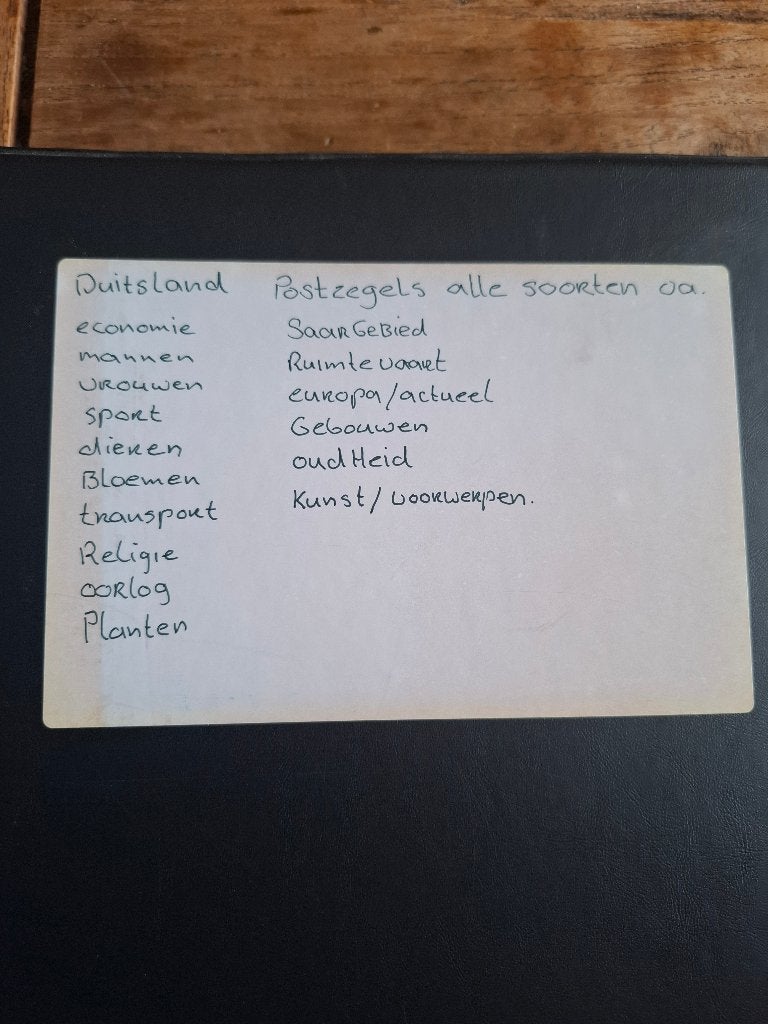 Duitsland Postzegels alle soorten oa.
economie
mannen
vrouwen
sport
dieren
Bloemen
transport
Religie
oorlog
Planten
SaarGeBied
Ruimtevaart
europa/actueel
Gebouwen
oudHeid
Kunst/voorwerpen.